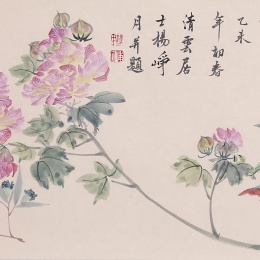 乙未
年初春
清雲居
士楊崢
月并題